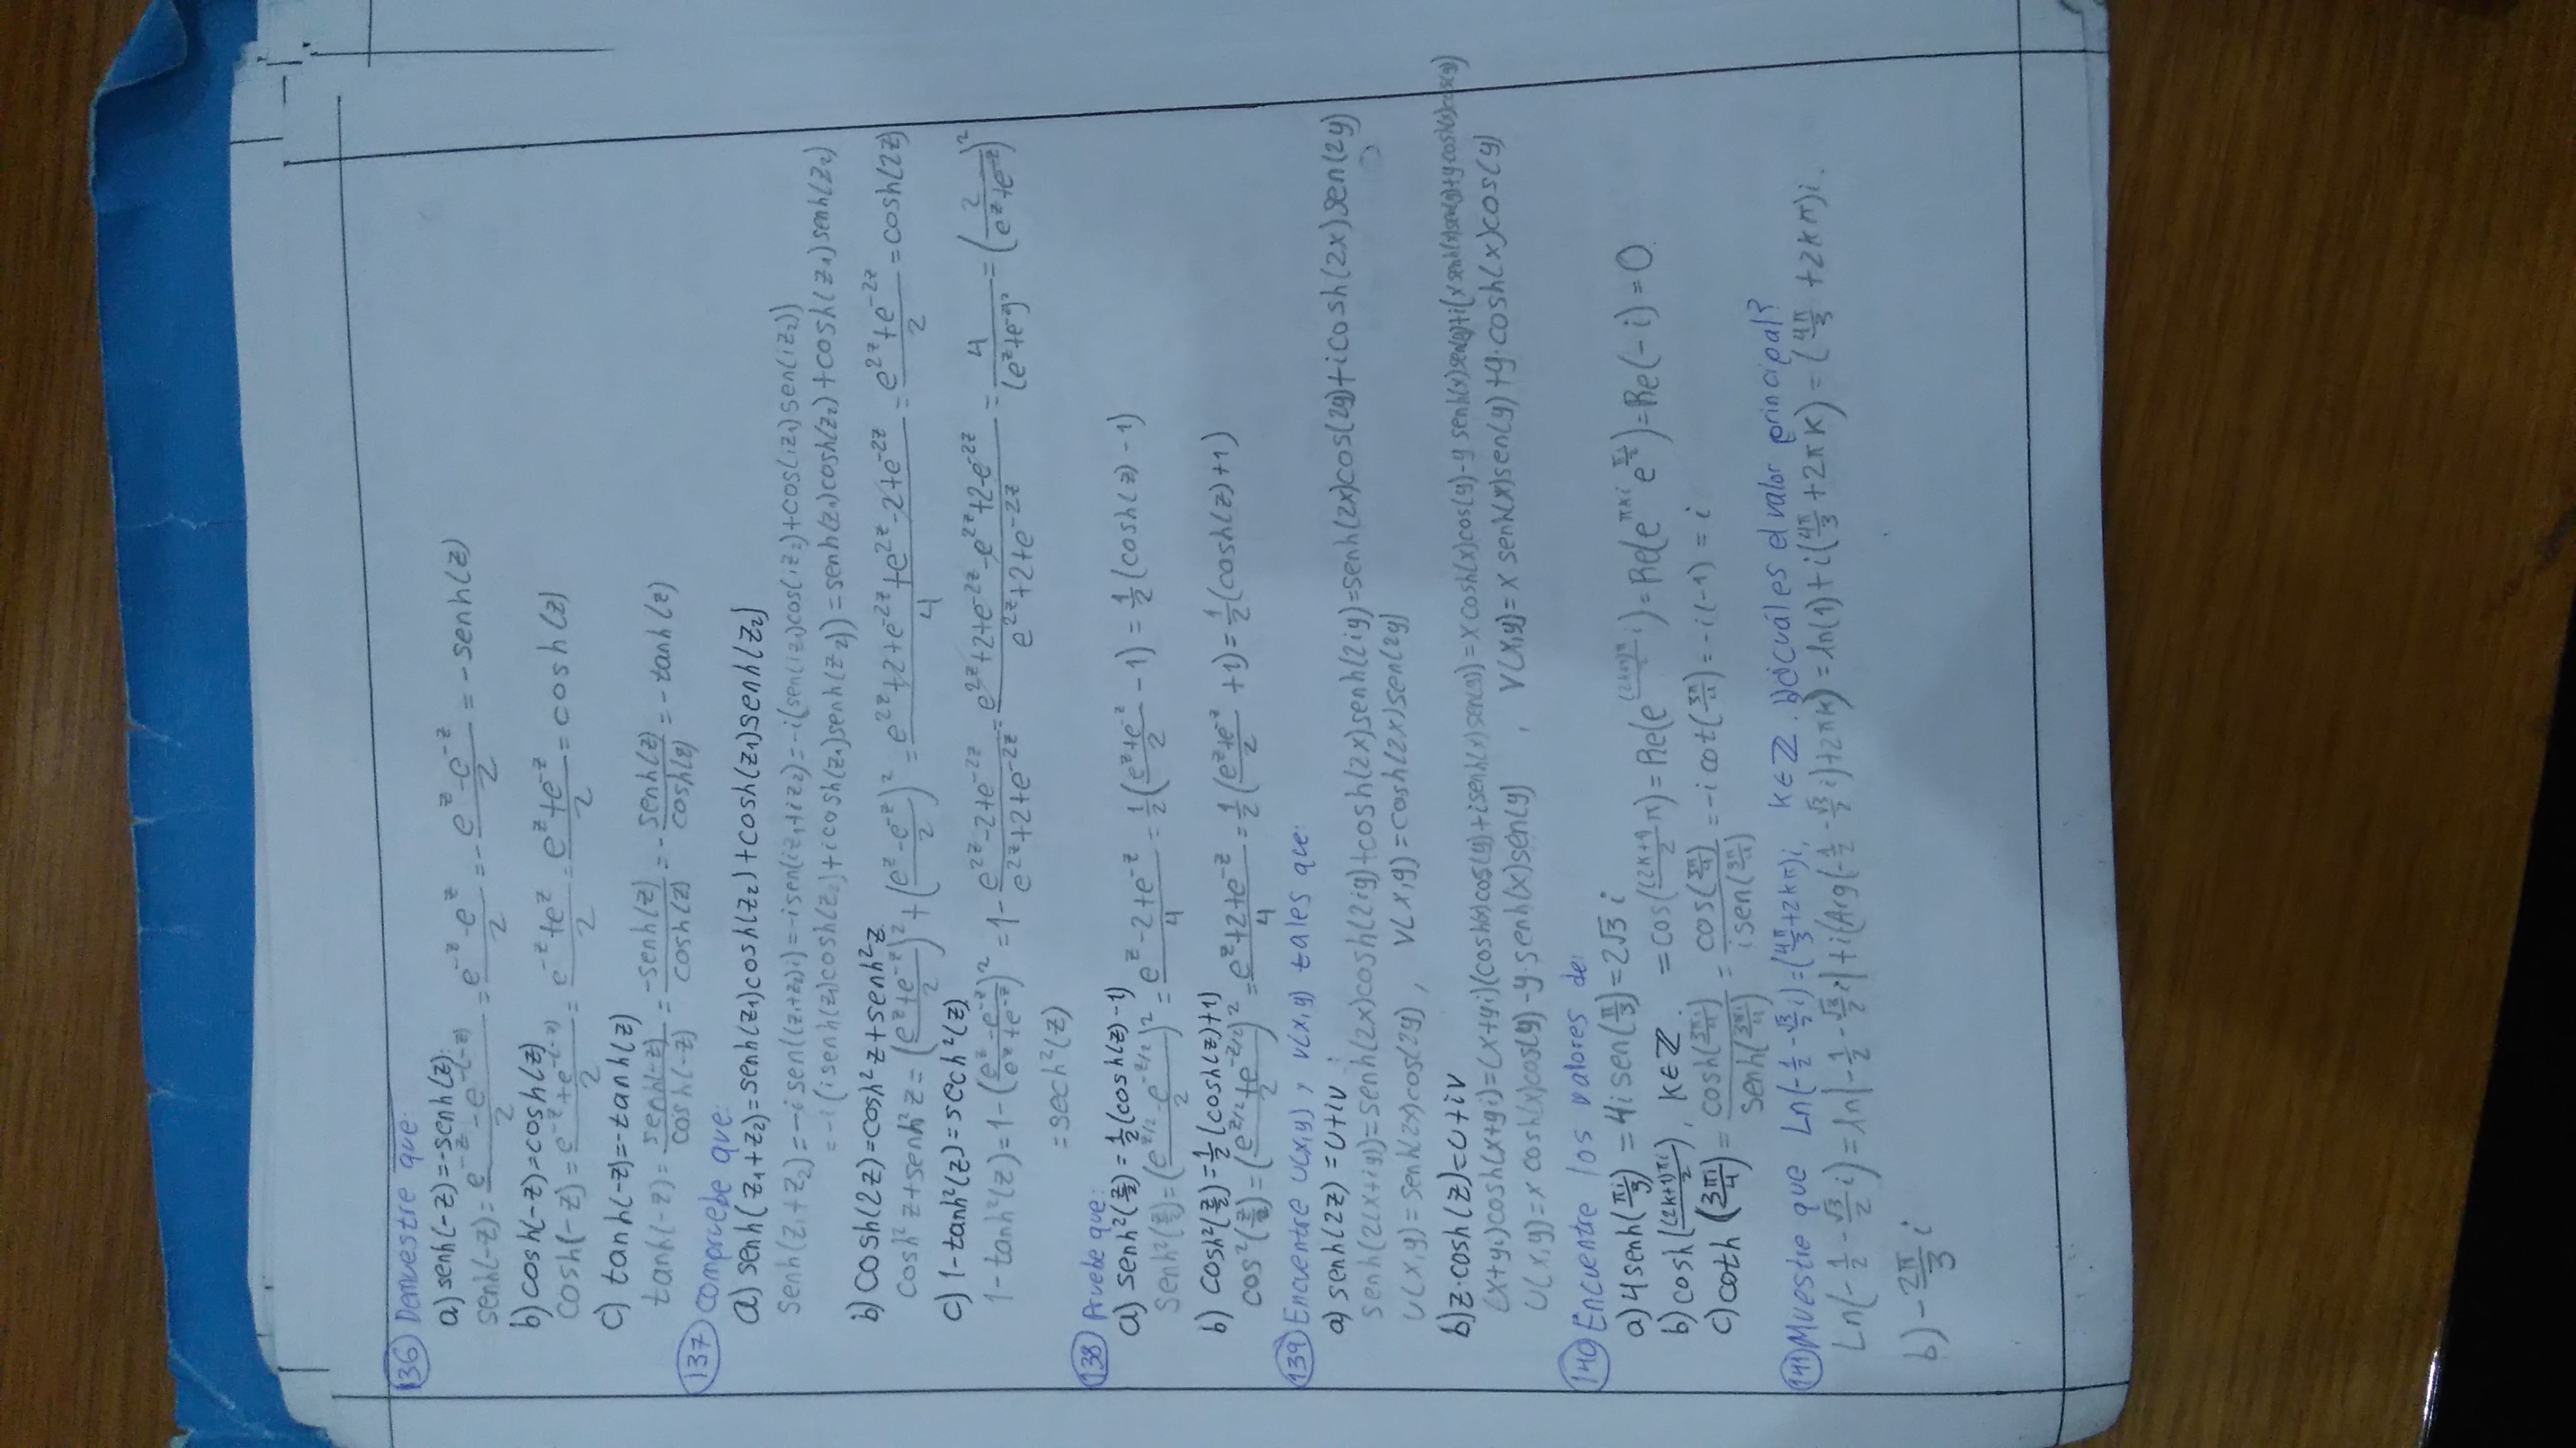 136) Demuestre que:
a) senh(-z)=-senh(z):
senh(-z)= (e^{-z} - e^{-(-z)})/2 = (e^{-z} - e^{z})/2 = - (e^{z} - e^{-z})/2 = -senh(z)
b) cosh(-z)=cosh(z)
cosh(-z)= (e^{-z} + e^{-(-z)})/2 = (e^{-z} + e^{z})/2 = (e^{z} + e^{-z})/2 = cosh(z)
c) tanh(-z)=-tanh(z)
tanh(-z)= senh(-z)/cosh(-z) = -senh(z)/cosh(z) = - senh(z)/cosh(z) = -tanh(z)
137) Compruebe que:
a) senh(z₁+z₂)=senh(z₁)cosh(z₂)+cosh(z₁)senh(z₂)
Senh(z₁+z₂)=-i sen((z₁+z₂)i)=-i sen(iz₁+iz₂)=-i(sen(iz₁)cos(iz₂)+cos(iz₁)sen(iz₂))
=-i(i senh(z₁)cosh(z₂)+i cosh(z₁)senh(z₂))=senh(z₁)cosh(z₂)+cosh(z₁)senh(z₂)
b) cosh(2z)=cosh²z+senh²z
cosh²z+senh²z= ((e^{z}+e^{-z})/2)² + ((e^{z}-e^{-z})/2)² = (e^{2z}+2+e^{-2z}+e^{2z}-2+e^{-2z})/4 = (e^{2z}+e^{-2z})/2 = cosh(2z)
c) 1-tanh²(z)=sech²(z)
1-tanh²(z)=1-((e^{z}-e^{-z})/(e^{z}+e^{-z}))² = 1-(e^{2z}-2+e^{-2z})/(e^{2z}+2+e^{-2z}) = (e^{2z}+2+e^{-2z}-e^{2z}+2-e^{-2z})/(e^{2z}+2+e^{-2z}) = 4/(e^{z}+e^{-z})² = (2/(e^{z}+e^{-z}))²
=sech²(z)
138) Pruebe que:
a) senh²(z/2)=1/2(cosh(z)-1)
Senh²(z/2)=((e^{z/2}-e^{-z/2})/2)² = (e^{z}-2+e^{-z})/4 = 1/2((e^{z}+e^{-z})/2 - 1) = 1/2(cosh(z)-1)
b) cosh²(z/2)=1/2(cosh(z)+1)
cos²(z/2)=((e^{z/2}+e^{-z/2})/2)² = (e^{z}+2+e^{-z})/4 = 1/2((e^{z}+e^{-z})/2 + 1) = 1/2(cosh(z)+1)
139) Encuentre u(x,y) y v(x,y) tales que:
a) senh(2z)=u+iv :
senh(2(x+iy))=senh(2x)cosh(2iy)+cosh(2x)senh(2iy)=senh(2x)cos(2y)+i cosh(2x)sen(2y)
u(x,y)=senh(2x)cos(2y), v(x,y)=cosh(2x)sen(2y)
b) z·cosh(z)=u+iv
(x+yi)cosh(x+yi)=(x+yi)(cosh(x)cos(y)+i senh(x)sen(y))=x cosh(x)cos(y)-y senh(x)sen(y)+i(x senh(x)sen(y)+y cosh(x)cos(y))
u(x,y)=x cosh(x)cos(y)-y·senh(x)sen(y) , v(x,y)=x senh(x)sen(y)+y·cosh(x)cos(y)
140) Encuentre los valores de:
a) 4senh(πi/3) = 4i sen(π/3)=2√3 i
b) cosh((2k+1)πi/2), k∈ℤ. =cos((2k+1)/2 π)=Re(e^{(2k+1)π/2 i})=Re(e^{πki} e^{πi/2})=Re(-i)=0
c) coth(3πi/4)= cosh(3πi/4)/senh(3πi/4) = cos(3π/4)/(i sen(3π/4)) = -i cot(3π/4)=-i(-1)=i
141) Muestre que Ln(-1/2-√3/2 i)=(4π/3+2kπ)i, k∈ℤ. b)¿cuál es el valor principal?
Ln(-1/2-√3/2 i)=ln|-1/2-√3/2 i|+i(Arg(-1/2-√3/2 i)+2πk)=ln(1)+i(4π/3+2πk)=(4π/3+2kπ)i.
b) -2π/3 i